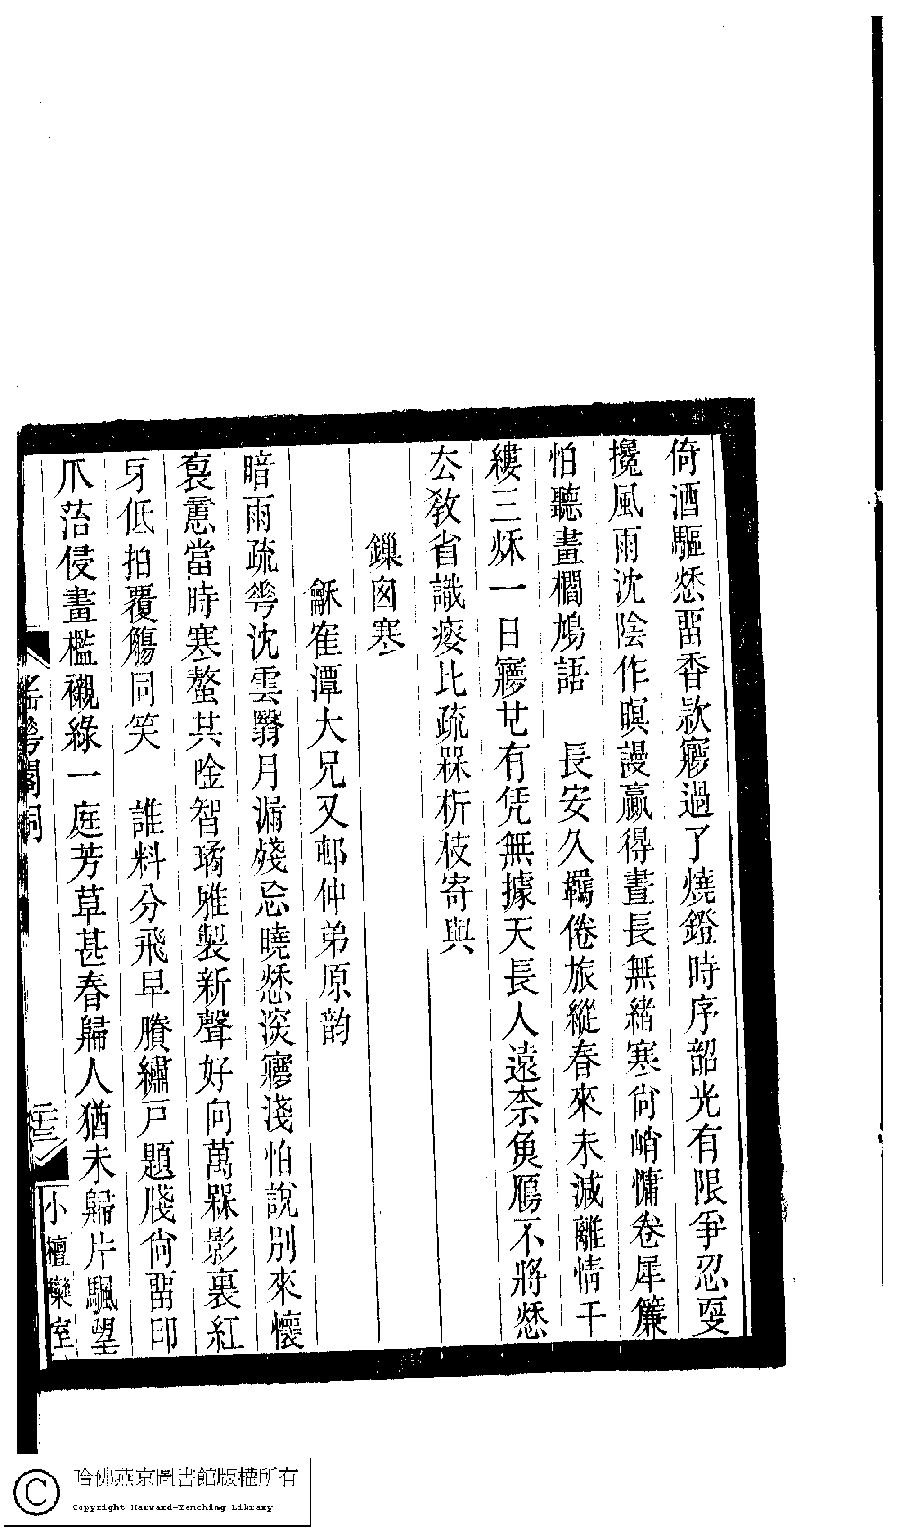 倚酒驅愁畱香款㝱過了燒鐙時序韶光有限爭忍耍
攙風雨沈陰作暝謾贏得晝長無緒寒尙峭慵卷犀簾
怕聽畫櫩鳩語　長安久羈倦旅縱春來未減離情千
縷三秌一日㝱也有凭無據天長人遠柰魚鴈不將愁
厺教省識瘦比疏槑析枝寄與
鏁囱寒
龢崔潭大兄又邨仲弟原韵
暗雨疏華沈雲翳月漏殘忘曉愁深㝱淺怕說別來懷
袌憙當時寒螯共唫智璚雅製新聲好向萬槑影裏紅
牙低拍覆觴同笑　誰料分飛早賸繡戶題牋尙畱印
爪菭侵畫檻襯綠一庭芳草甚春歸人猶未歸片颿望
瑤華閣詞
二十三
小檀欒室
哈佛燕京圖書館版權所有
Copyright Harvard-Yenching Library